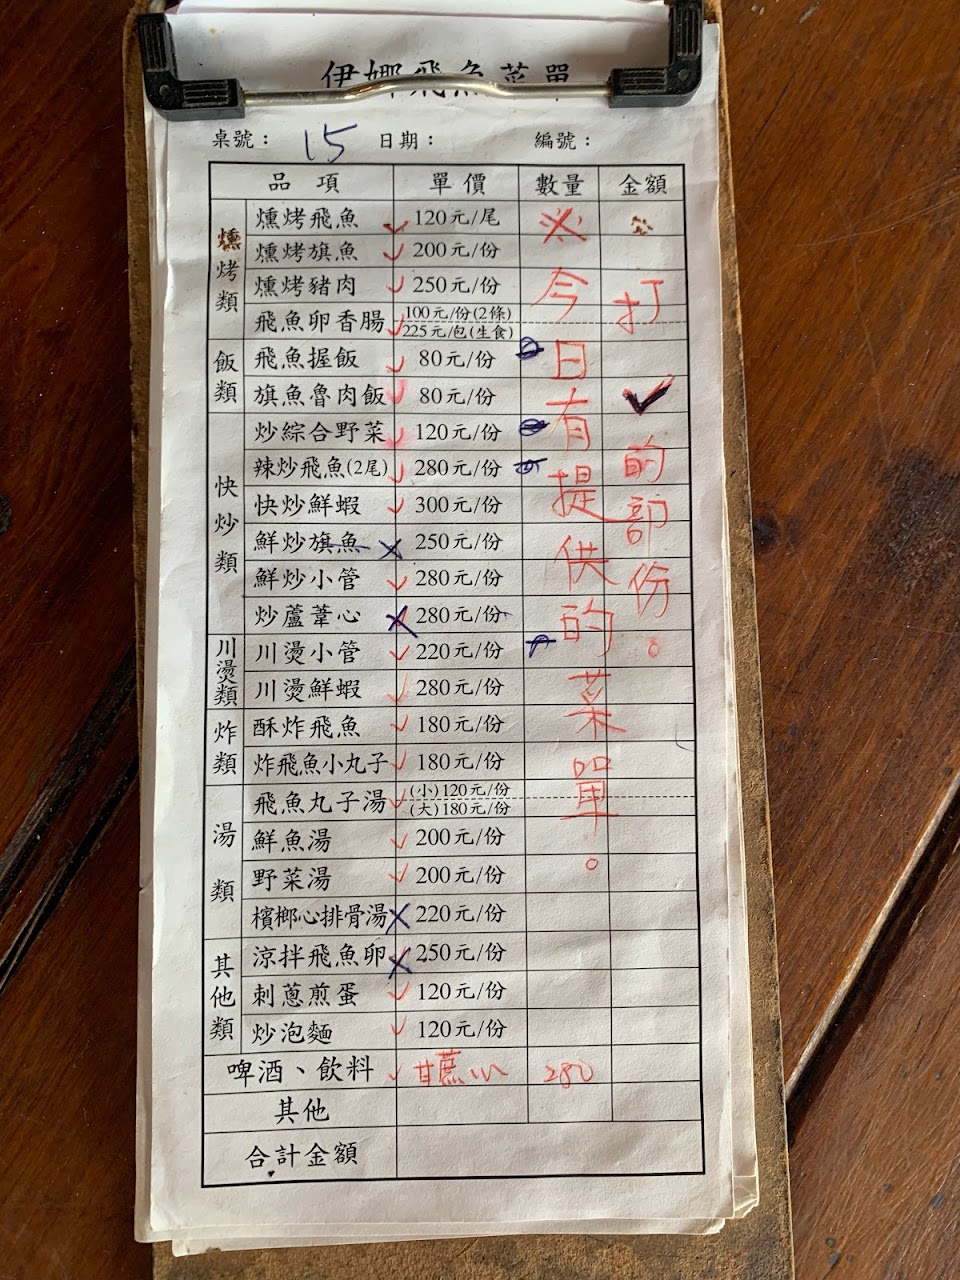 伊娜飛魚菜單
桌號： 15 日期： 編號：
品項 單價 數量 金額
燻烤類
燻烤飛魚 ✓ 120元/尾
燻烤旗魚 ✓ 200元/份
燻烤豬肉 ✓ 250元/份
飛魚卵香腸 ✓ 100元/份(2條)
225元/包(生食)
飯類
飛魚握飯 ✓ 80元/份
旗魚魯肉飯 ✓ 80元/份
快炒類
炒綜合野菜 ✓ 120元/份
辣炒飛魚(2尾) ✓ 280元/份
快炒鮮蝦 ✓ 300元/份
鮮炒旗魚 ✗ 250元/份
鮮炒小管 ✓ 280元/份
炒蘆葦心 ✗ 280元/份
川燙類
川燙小管 ✓ 220元/份
川燙鮮蝦 ✓ 280元/份
炸類
酥炸飛魚 ✓ 180元/份
炸飛魚小丸子 ✓ 180元/份
湯類
飛魚丸子湯 ✓ (小)120元/份
(大)180元/份
鮮魚湯 ✓ 200元/份
野菜湯 ✓ 200元/份
檳榔心排骨湯 ✗ 220元/份
其他類
涼拌飛魚卵 ✗ 250元/份
刺蔥煎蛋 ✓ 120元/份
炒泡麵 ✓ 120元/份
啤酒、飲料 ✓ 甘蔗心 280
其他
合計金額
※今日有提供的菜單。
打✓的部份。